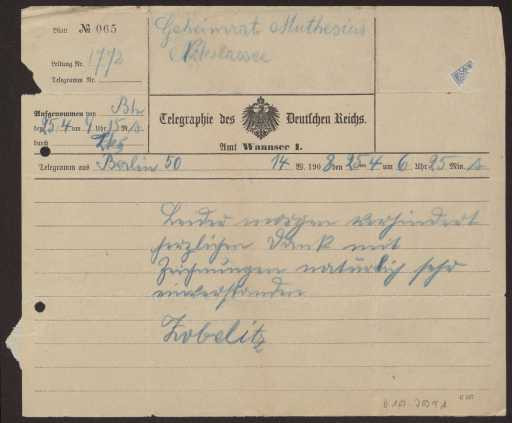 Blatt № 065
Geheimrat Muthesius
Nikolassee
Leitung Nr. 1772
Telegramm Nr.
Aufgenommen von Bln
den 25.4 um 7 Uhr 15 M. s
durch
Telegraphie des Deutschen Reichs.
Amt Wannsee 1.
Telegramm aus Berlin 50 14 W. 190 8 den 25 4 um 6 Uhr 25 Min. s
Leider morgen verhindert
herzlichen Dank mit
Zeichnungen natürlich sehr
einverstanden
Zobeltitz